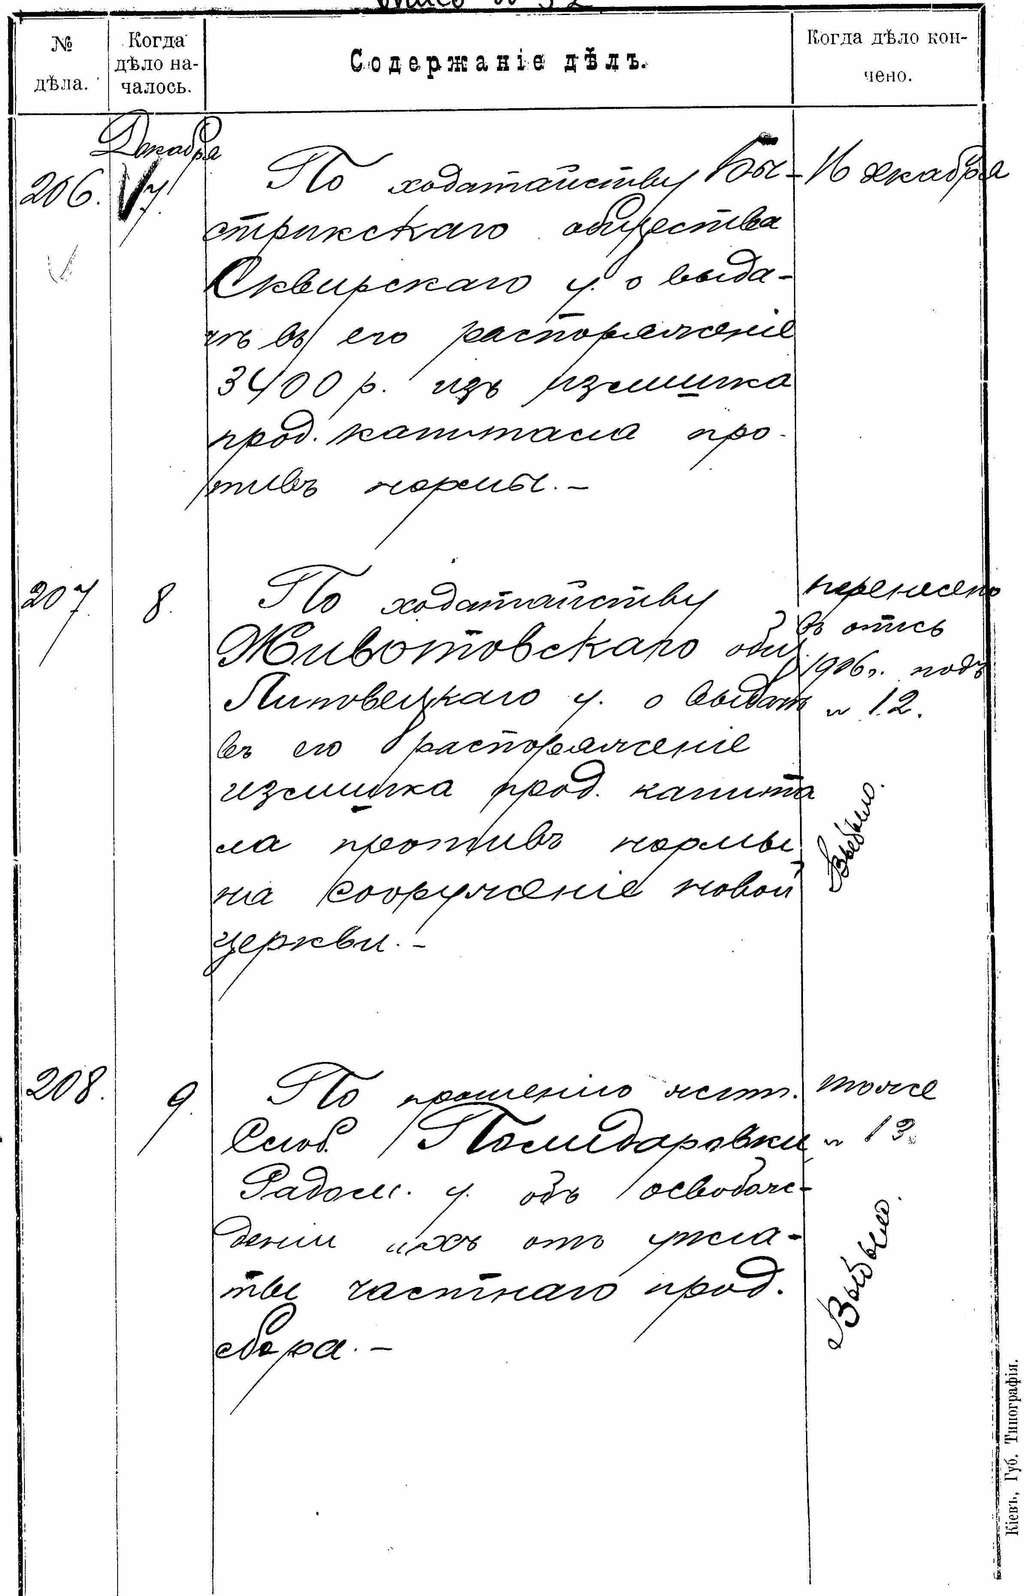 Опись № 32
№ дѣла.
Когда дѣло началось.
Содержаніе дѣлъ.
Когда дѣло кончено.
Декабря
206. 7. По ходатайству Бы- 16 декабря
стрикскаго общества
Сквирскаго у. о выда-
чѣ въ его распоряженіе
3400 р. изъ излишка
прод. капитала про-
тивъ нормы. -
207. 8. По ходатайству перенесено
Животовскаго общ въ опись
Липовецкаго у. о выдачѣ 1906 г. подъ
въ его распоряженіе № 12.
излишка прод. капита
ла противъ нормы Выбыло.
на сооруженіе новой
церкви. -
208. 9. По прошенію жит. тоже
Слоб. Полидаровки № 13.
Радом. у. объ освобож-
деніи ихъ отъ упла- Выбыло.
ты частнаго прод.
сбора. -
Кіевъ, Губ. Типографія.